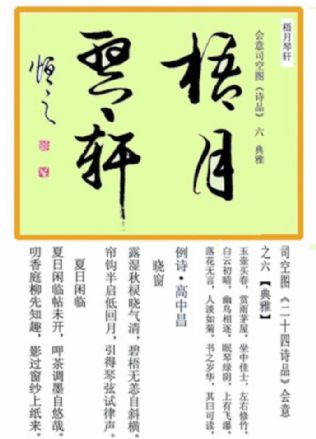 梧月琴轩
会意司空图《诗品》六 典雅
梧月
琴轩
恒之
司空图《二十四诗品》会意
之六【典雅】
玉壶买春，赏雨茅屋。坐中佳士，左右修竹。
白云初晴，幽鸟相逐。眠琴绿阴，上有飞瀑。
落花无言，人淡如菊。书之岁华，其曰可读。
例诗·高中昌
晓窗
露湿秋棂晓气清，碧梧无恙自斜横。
帘钩半启低回月，引得琴弦试律声。
夏日闲临
夏日闲临帖未开，呷茶调墨自悠哉。
叨香庭柳先知趣，影过窗纱上纸来。